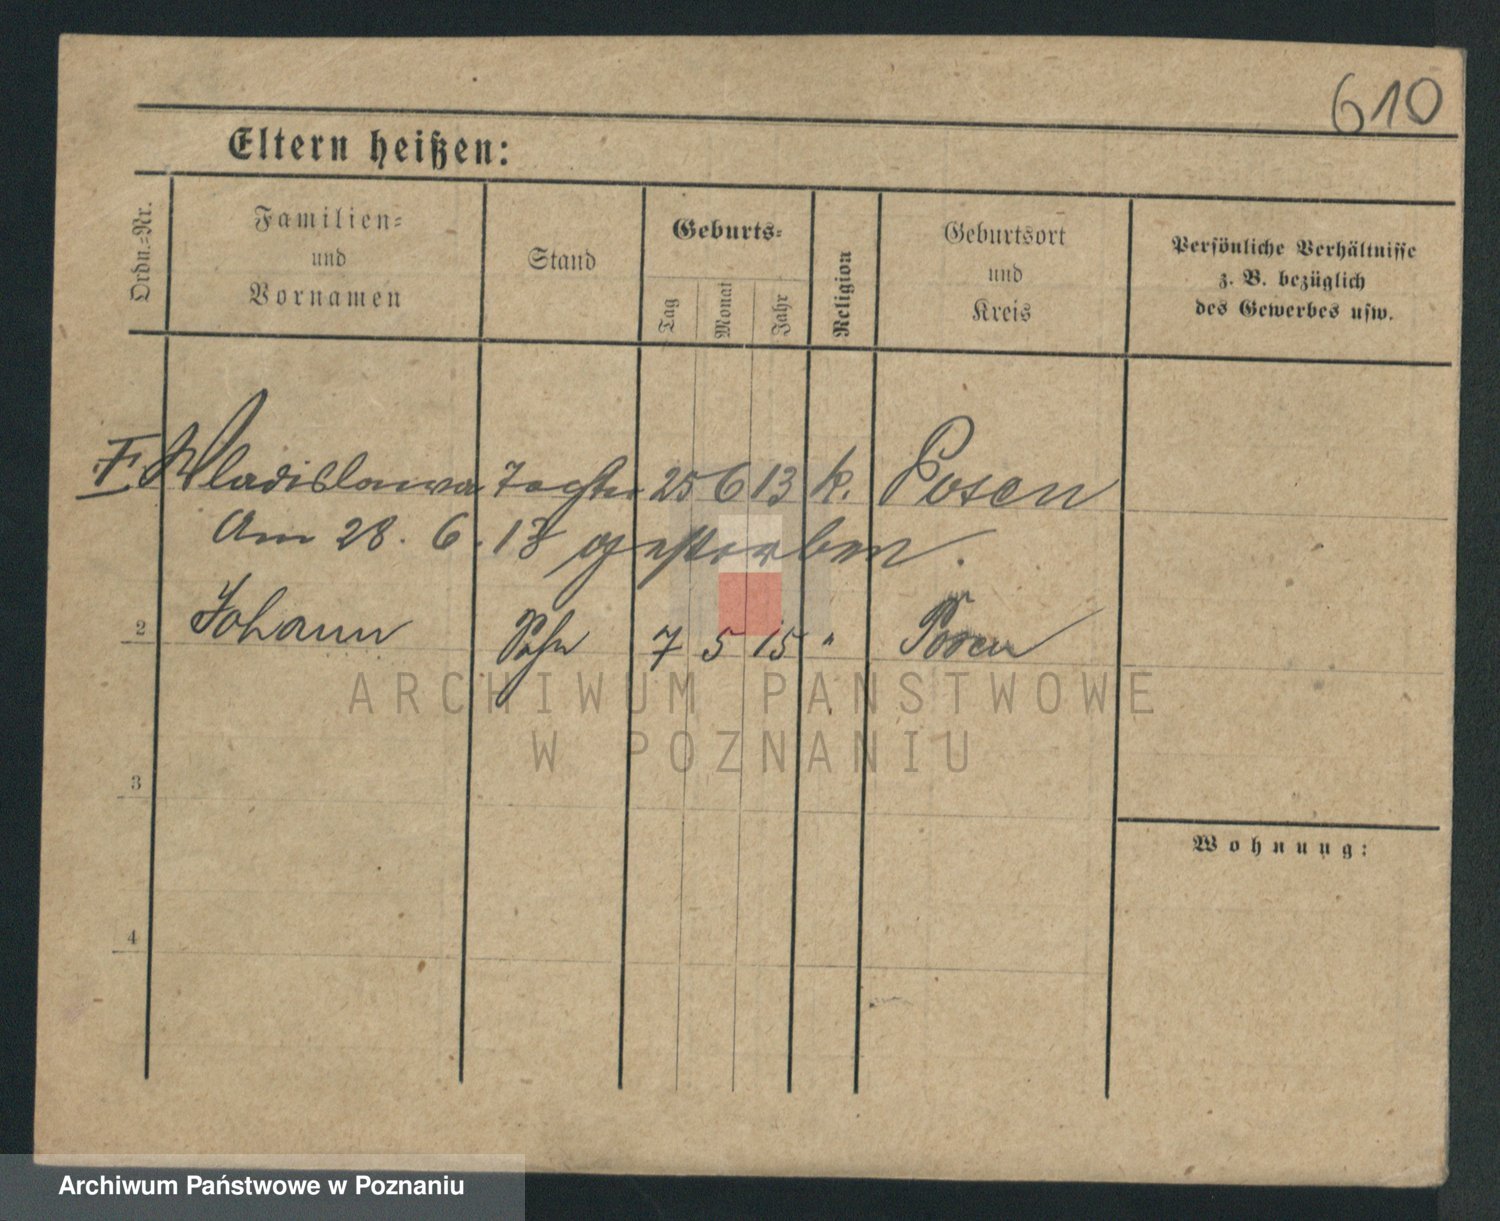 610
Eltern heißen:
Ordn.-Nr.
Familien-
und
Vornamen
Stand
Geburts-
Tag
Monat
Jahr
Religion
Geburtsort
und
Kreis
Persönliche Verhältnisse
z. B. bezüglich
des Gewerbes usw.
Wladislawa Tochter 25 6 13 k. Posen
Am 28. 6. 13 gestorben.
2 Johann Sohn 7 5 15 " Posen
3
4
Wohnung:
ARCHIWUM PAŃSTWOWE
W POZNANIU
Archiwum Państwowe w Poznaniu